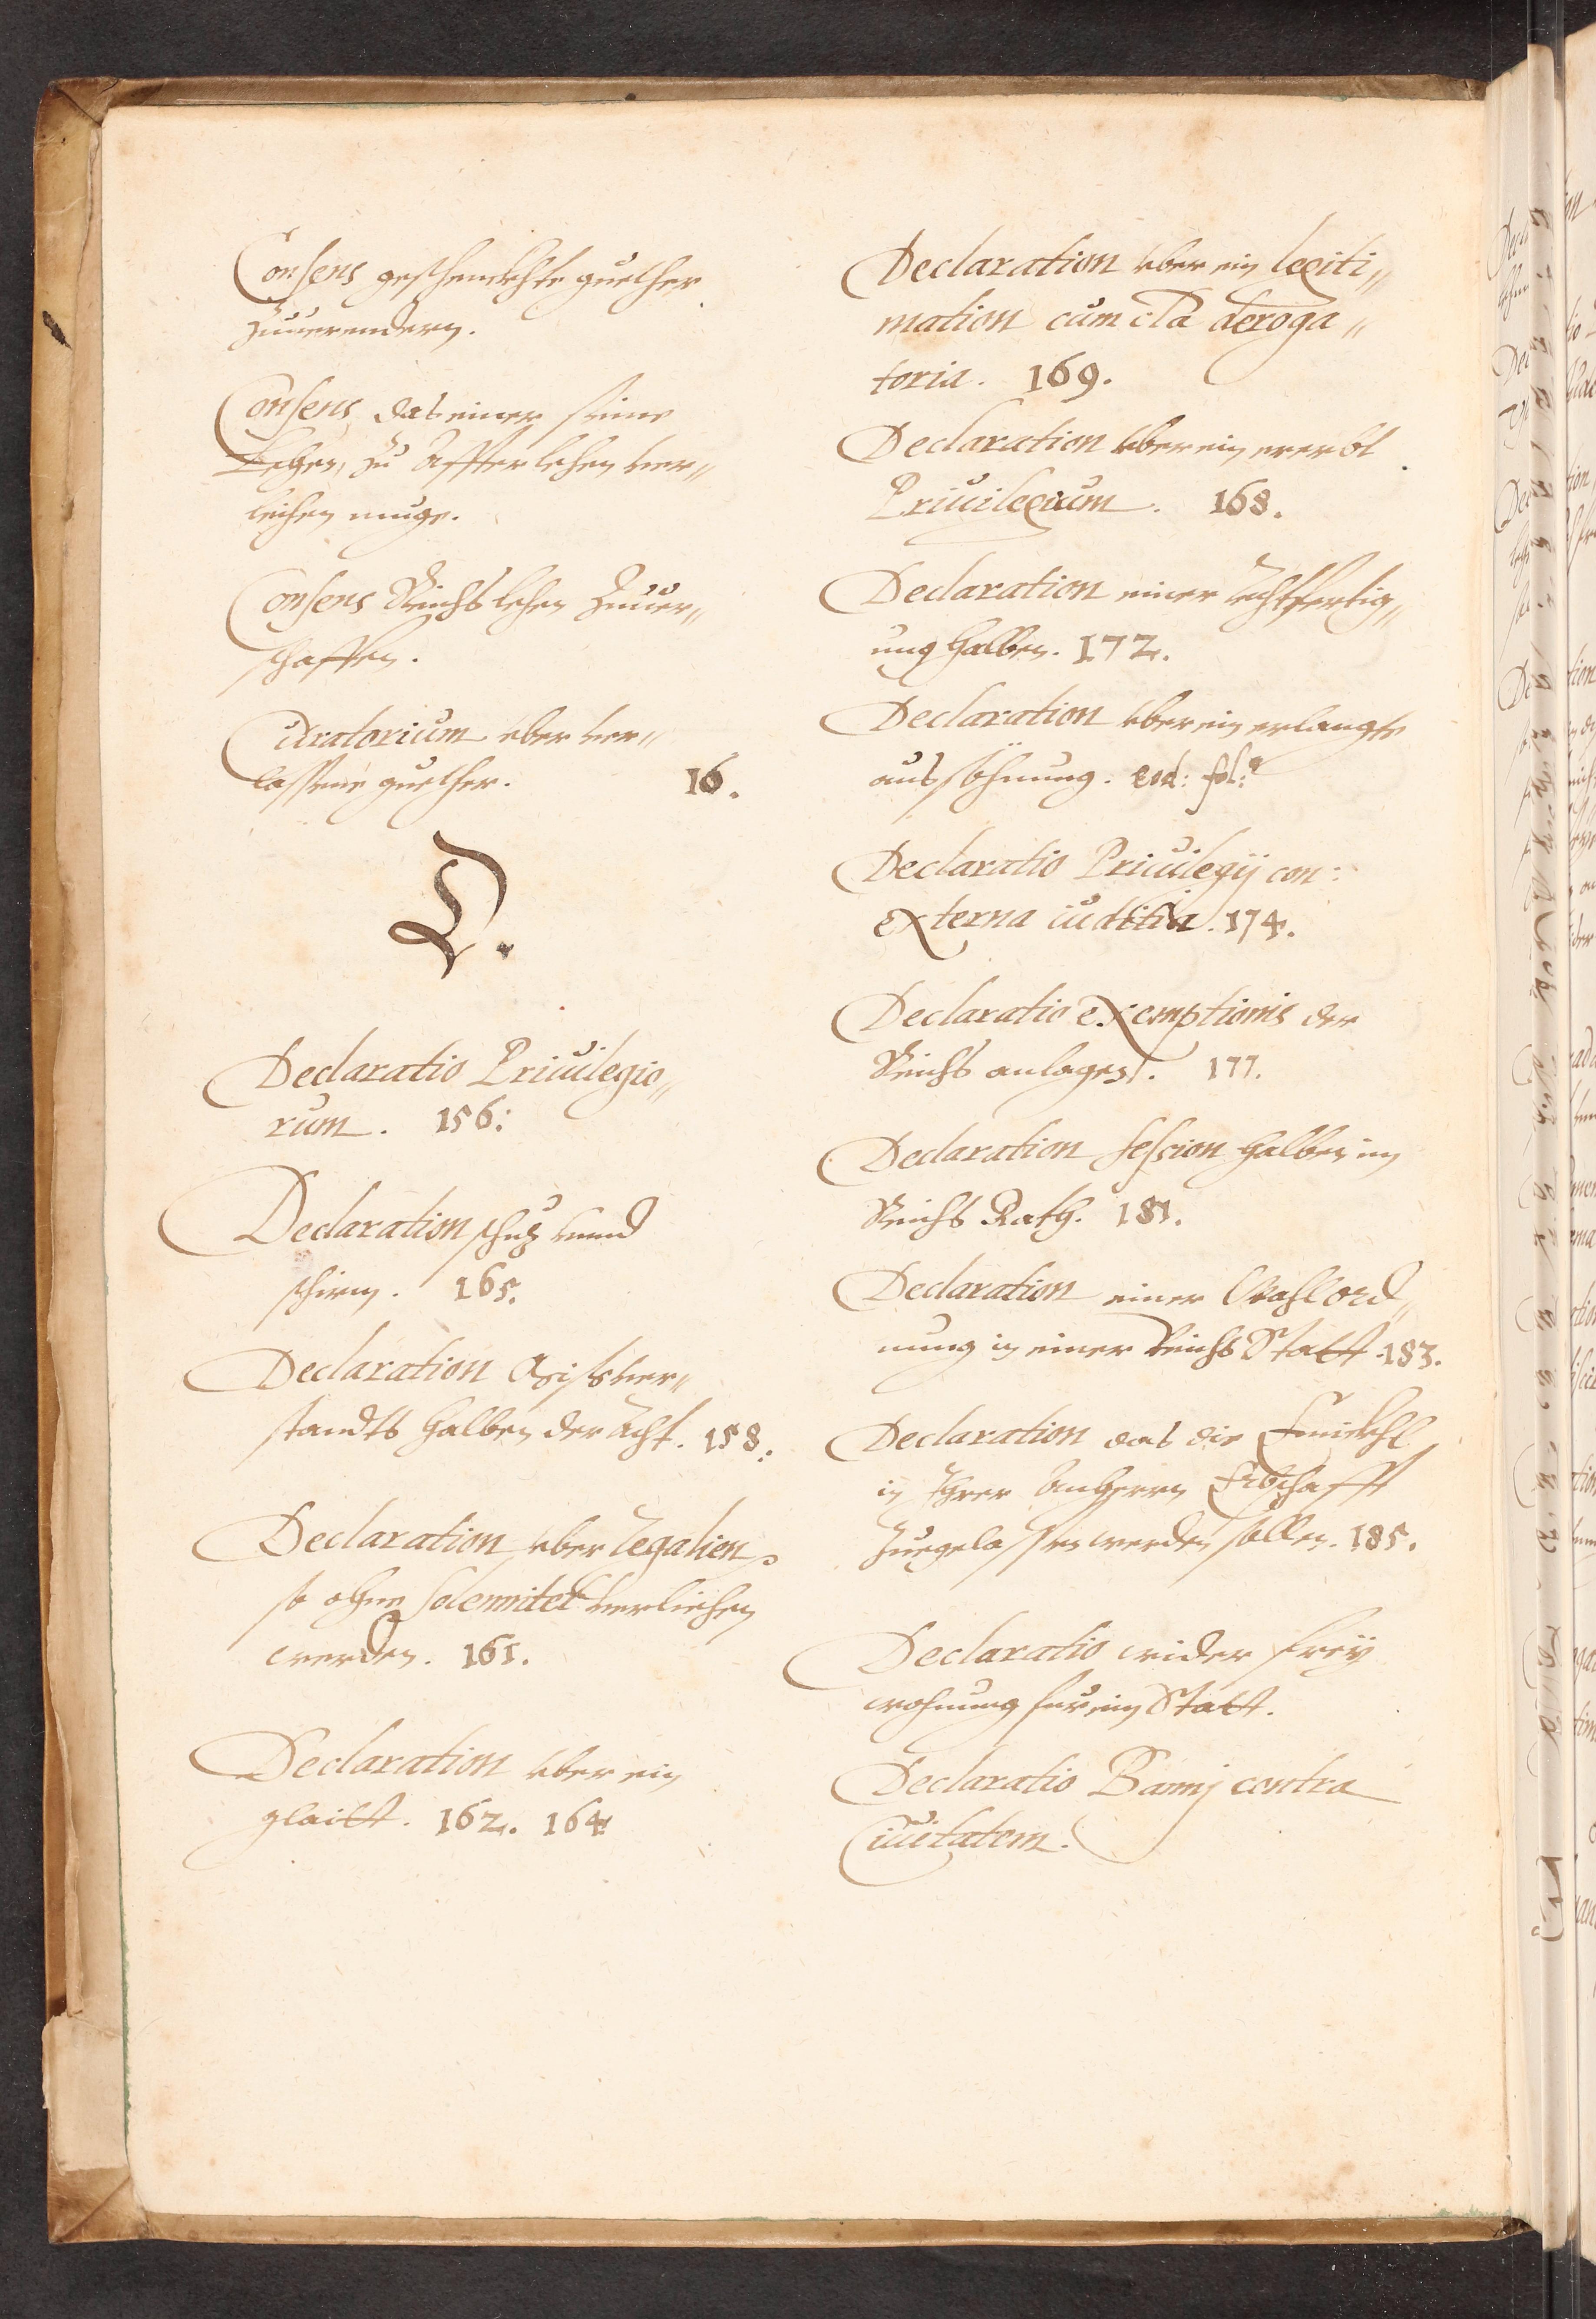 Consens geschenckhte guether
Zuuerendern.
Consens, das einer seine
Lehen, zu Affterlehen ver„
leihen muge.
Consens Reichs lehen Zuuer„
schaffen.
Curatorium vber ver„
lassene guether. 16.
D.
Declaratio Priuilegio„
rum. 156:
Declaration schuz vnnd
schirm. 165.
Declaration Misver„
standts halben der Acht. 158:
Declaration vber Regalien
so ohne solennitet verliehen
werden. 161.
Declaration vber ein
glaitt. 162. 164
Declaration vber ein legiti„
mation cum cla deroga„
toria. 169.
Declaration vber ein ererbt
Priuilegium. 168.
Declaration einer rechtfertig„
ung halben. 172.
Declaration vber ein erlangte
aussöhnung. eod: fol:
Declaratio Priuilegij con:
externa iuditia. 174.
Declaratio exemptionis der
Reichs anlagen. 177.
Declaration session halben im
Reichs Rath. 181.
Declaration einer Wahlord„
nung in einer Reichs Statt. 183.
Declaration das die Enickhl
in Ihrer Anherrn Erbschafft
Zuegelassen werden sollen. 185.
Declaratio wider frey
wohnung für ein Statt.
Declaratio Banni contra
Ciuitatem.